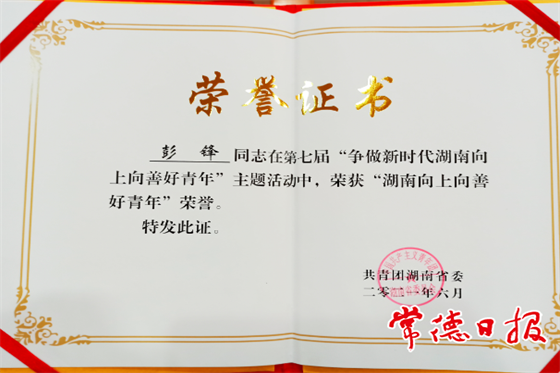 荣誉证书
彭锋 同志在第七届“争做新时代湖南向
上向善好青年”主题活动中，荣获“湖南向上向善
好青年”荣誉。
特发此证。
共青团湖南省委
二零二 年六月
常德日报